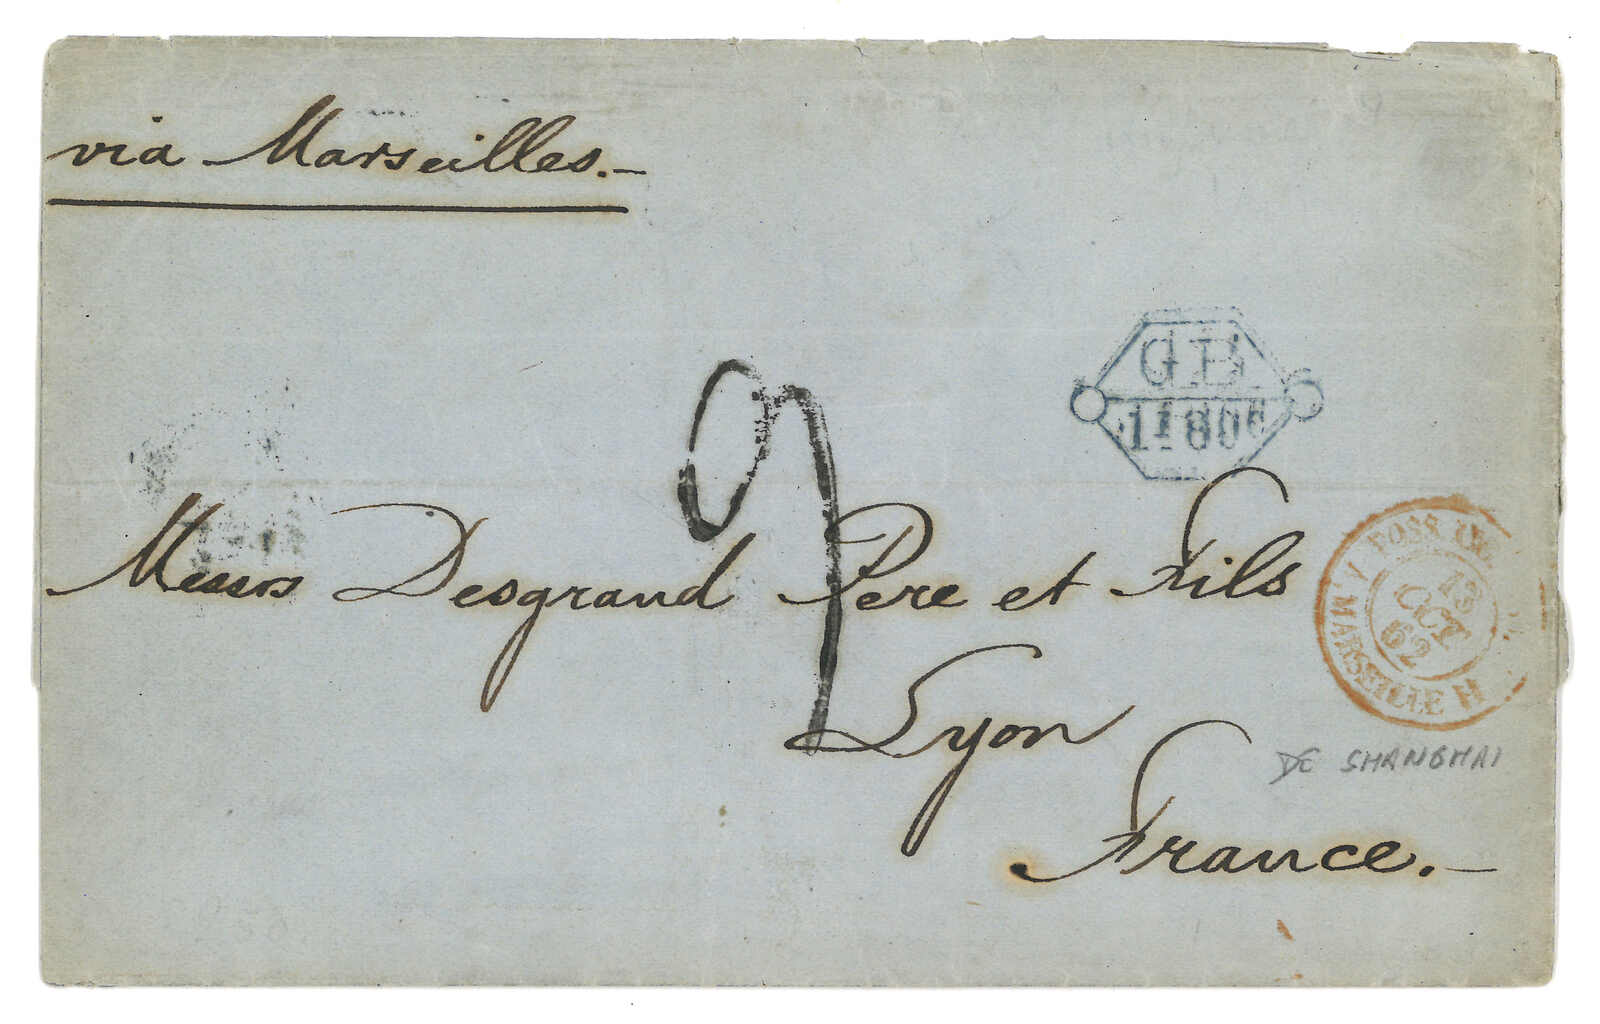 via Marseilles.-
G.B.
1F 80c
9
Messrs Desgrand Pere et Fils
Lyon
France.-
POSS. ANG.
13
OCT.
62
A. MARSEILLE
DE SHANGHAI